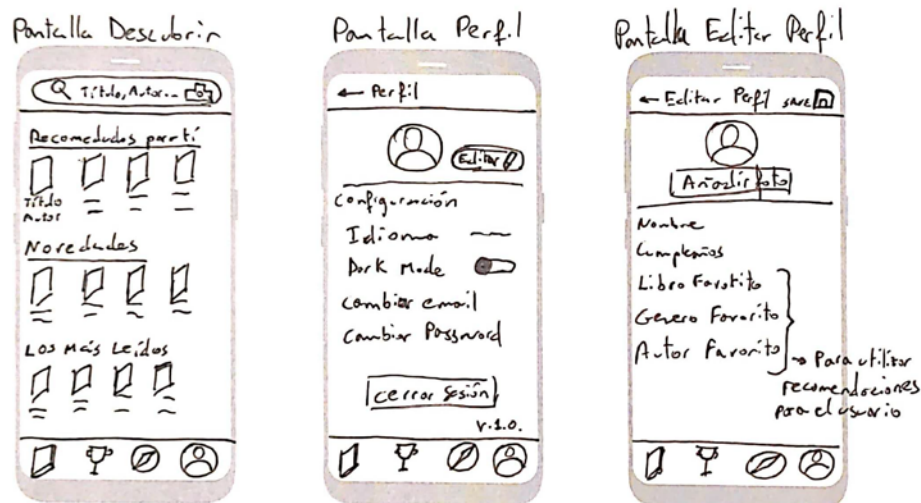 Pantalla Descubrir
Título, Autor...
Recomedados para tí
Título
Autor
Novedades
Los Más Leídos
Pantalla Perfil
← Perfil
Editar
Configuración
Idioma
Dark Mode
Cambiar email
Cambiar Password
Cerrar Sesión
v.1.0.
Pantalla Editar Perfil
← Editar Perfil SAVE
Añadir foto
Nombre
Cumpleaños
Libro Favorito
Genero Favorito
Autor Favorito
→ Para utilizar
recomendaciones
para el usuario